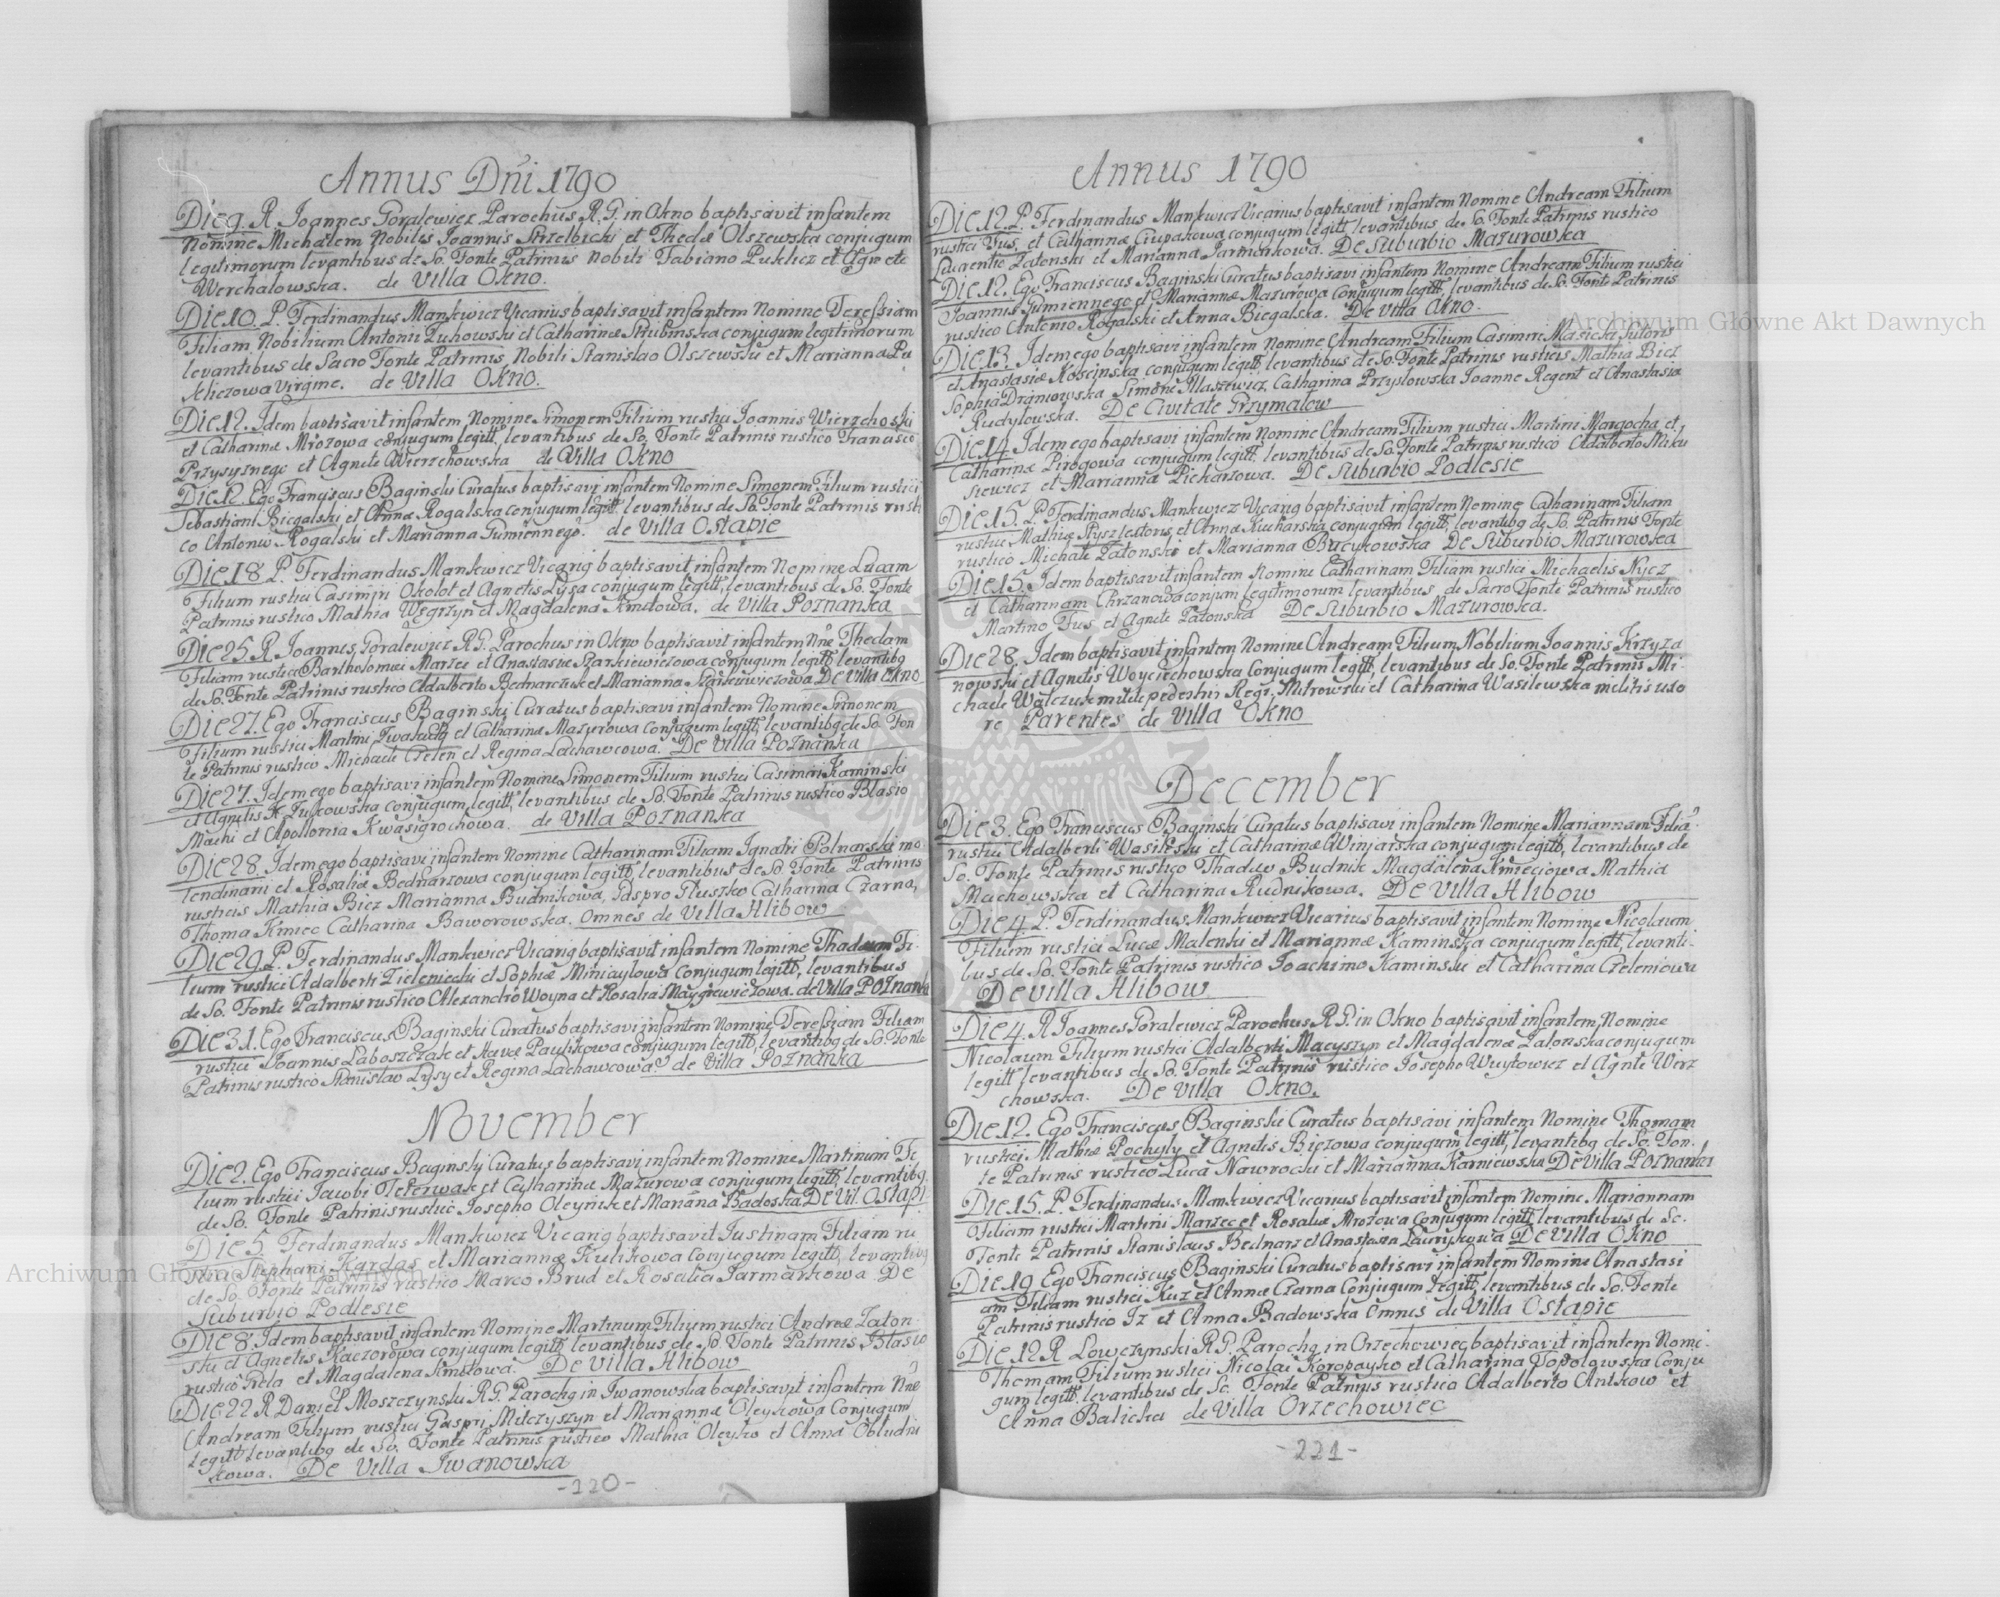 Annus Dñi 1790
Die 9. R. Joannes Goralewicz Parochus R. G. in Okno baptisavit infantem
Nomine Michalem Nobilis Joannis Strzelbicki et Theclæ Olszewska conjugum
legitimorum levantibus de So. Fonte Patrinis Nobili Fabiano Puklicz et
Werchalowska. de Villa Okno.
Die 10. P. Ferdinandus Mankwicz Vicarius baptisavit infantem Nomine Teressiam
Filiam Nobilium Antonii Zuhowski et Catharinæ conjugum legitimorum
levantibus de Sacro Fonte Patrinis, Nobili Stanislao Olszewski et Marianna Pu
kliczowa Virgine. de Villa Okno.
Die 12. Idem baptisavit infantem Nomine Simonem Filium rustici Joannis Wierzchoski
et Catharinæ Mrozowa conjugum legitt, levantibus de So. Fonte Patrinis rustico Francisco
Przysyznego et Agnete Wierzchowska de Villa Okno
Die 12. Ego Franciscus Baginski Curatus baptisavi infantem Nomine Simonem Filium rustici
Sebastiani Biegalski et Annæ Rogalska conjugum legitt, levantibus de So. Fonte Patrinis rusti
co Antonio Rogalski et Marianna Gumiennego. de Villa Ostapie
Die 18 P. Ferdinandus Mankewicz Vicarig baptisavit infantem Nomine Lucam
Filium rustici Casimiri Okolot et Agnetis Lysa conjugum legitt, levantibus de So. Fonte
Patrinis rustico Mathia Węgrzyn et Magdalena Kmetowa. de Villa Poznanka
Die 25. R. Joannes Goralewicz R. G. Parochus in Okno baptisavit infantem Nñe Theclam
Filiam rustici Bartholomei Marzec et Anastasiæ Szarkiewiczowa conjugum legitt, levantibg
de So. Fonte Patrinis rustico Adalberto Bednarczuk et Marianna Szarkiewiczowa De Villa Okno
Die 27. Ego Franciscus Baginski Curatus baptisavi infantem Nomine Simonem
Filium rustici Martini Iwasiech et Catharinæ Mazurowa conjugum legitt, levantibg de So. Fon
te Patrinis rustico Michaele Czelen et Regina Lachawcowa. De Villa Poznanka
Die 27. Idem ego baptisavi infantem Nomine Simonem Filium rustici Casimiri Kaminski
et Agnetis K. conjugum legitt, levantibus de So. Fonte Patrinis rustico Blasio
Machi et Apollonia Kwasigrochowa. de Villa Poznanka
Die 28. Idem ego baptisavi infantem Nomine Catharinam Filiam Ignatri Polnarski mo
lendinarii et Rosaliæ Bednarzowa conjugum legitt, levantibus de So Fonte Patrinis
rusticis Mathia Bicz Marianna Budnikowa, Gaspro Gluszko Catharina Czarna,
Thoma Kmiec Catharina Baworowska. Omnes de Villa Hlibow
Die 29. P. Ferdinandus Mankwicz Vicarig baptisavit infantem Nomine Thadeum Fi-
lium rustici Adalberti Zieleniecki et Sophiæ Minicaylowa conjugum legitt, levantibus
de So. Fonte Patrinis rustico Alexandro Woyna et Rosalia Maygiewiczowa. de Villa Poznanka
Die 31. Ego Franciscus Baginski Curatus baptisavi infantem Nomine Teressiam Filiam
rustici Joannis Laboszczak et Pawlikowa conjugum legitt, levantibg de So. Fonte
Patrinis rustico Stanislao Lysy et Regina Lachawcowa. de Villa Poznanka
November
Die 2. Ego Franciscus Baginsky Curatus baptisavi infantem Nomine Martinum Fi
lium rustici Jacobi Teterwak et Catharinæ Mazurowa conjugum legitt, levantibg
de So. Fonte Patrinis rustico Josepho Oleynik et Mariana Badoska De Vil. Ostapi
Die 5. Ferdinandus Mankwicz Vicarig baptisavit Justinam Filiam ru
stici Stephani Kardas et Mariannæ Kulikowa conjugum legitt, levantibg
de So. Fonte Patrinis rustico Marco Brud et Rosalia Jarmarkowa De
Suburbio Podlesie
Die 8. Idem baptisavit infantem Nomine Martinum Filium rustici Andreæ Zaton-
ski et Agnetis Kaczorowa conjugum legitt, levantibus de So. Fonte Patrinis Blasio
rustico Rela et Magdalena Kmetowa. De Villa Hlibow
Die 22 R Daniel Moszczynski R. G. Parochg in Iwanowska baptisavit infantem Nñe
Andream Filium rustici Gaspri Milczyszyn et Mariannæ Oleykowa Conjugum
legitt levantibg de So. Fonte Patrinis rustico Mathia Oleyko et Anna Obludni
kowa. De Villa Iwanowka
-220-
Annus 1790
Die 12. P. Ferdinandus Mankwicz Vicarius baptisavit infantem Nomine Andream Filium
rustici Fus, et Catharinæ Ciupakowa conjugum legitt, levantibus de So. Fonte Patrinis rustico
Laurentio Zatonski et Marianna Jarmarkowa. De Suburbio Mazurowka
Die 12. Ego Franciscus Baginski Curatus baptisavi infantem Nomine Andream Filium rustici
Joannis Gumiennego et Mariannæ Mazurowa Conjugum legitt, levantibus de So. Fonte Patrinis
rustico Antonio Rogalski et Anna Biegalska. De Villa Okno.
Die 13. Idem ego baptisavi infantem Nomine Andream Filium Casimiri Masicki Sutoris
et Anastasiæ Koscinska conjugum legitt, levantibus de So. Fonte Patrinis rusticis Mathia Bicz
Sophia Simone Ilaszewicz Catharina Przyslowska Joanne Regent et Anastasia
Rudylowska. De Civitate Grzymalow
Die 14. Idem ego baptisavi infantem Nomine Andream Filium rustici Martini Margocha et,
Catharinæ Pirogowa conjugum legitt, levantibus de So. Fonte Patrinis rustico Adalberto Miku
siewicz et Marianna Piekarzowa. De Suburbio Podlesie
Die 15. P. Ferdinandus Mankwicz Vicarig baptisavit infantem Nomine Catharinam Filiam
rustici Mathiæ Stysz textoris, et Annæ Kucharska conjugum legitt, levantibg de So. Patrinis Fonte
rustico Michale Zatonski et Marianna Bucykowska De Suburbio Mazurowka
Die 15. Idem baptisavit infantem Nomine Catharinam Filiam rustici Michaelis Nycz
et Catharinam Chrzanowa conjum legitimorum levantibus de Sacro Fonte Patrinis rustico
Martino Fus et Agnete Zatonska De Suburbio Mazurowka.
Die 28. Idem baptisavit infantem Nomine Andream Filium Nobilium Joannis Krzyza
nowski et Agnetis Woyciechowska Conjugum legitt, levantibus de So. Fonte Patrinis Mi-
chaele Walczuk milite pedestris Regi. Mitrowski et Catharina Wasilewska militis uxo
re Parentes de Villa Okno
December
Die 3. Ego Franciscus Baginski Curatus baptisavi infantem Nomine Mariannam Filiã
rustici Adalberti Wasilski et Catharinæ Winiarska conjugum legitt, levantibus de
So. Fonte Patrinis rustico Thadeo Budnik Magdalena Kmieciowa Mathia
Machowska et Catharina Rudnikowa. De Villa Hlibow
Die 4. P. Ferdinandus Mankwicz Vicarius baptisavit infantem Nomine Nicolaum
Filium rustici Lucæ Malenki et Mariannæ Kaminska conjugum legitt, levanti-
bus de So. Fonte Patrinis rustico Joachimo Kaminski et Catharina Czeleniowa
De Villa Hlibow
Die 4. R Joannes Goralewicz Parochus R G. in Okno baptisavit infantem, Nomine
Nicolaum Filium rustici Adalberti Macyszyn et Magdalenæ Zatonska conjugum
legitt levantibus de So. Fonte Patrinis rustico Josepho Wuytowicz et Agnte Wirz
chowska. De Villa Okno.
Die 12. Ego Franciscus Baginski Curatus baptisavi infantem Nomine Thomam
rustici Mathiæ Pochyly et Agnetis Biczowa conjugum legitt, levantibg de So. Fon-
te Patrinis rustico Luca Nawrocki et Marianna Karniewska De Villa Poznanki
Die 15. P. Ferdinandus Mankwicz Vicarius baptisavit infantem Nomine Mariannam
Filiam rustici Martini Marzec et Rosaliæ Mrozowa Conjugum legitt levantibus de Sc.
Fonte Patrinis Stanislaus Bednarz et Anastasia De Villa Okno
Die 19 Ego Franciscus Baginski Curatus baptisavi infantem Nomine Anastasi
am Filiam rustici Kuz et Annæ Czarna Conjugum legitt, levantibus de So. Fonte
Patrinis rustico Iz et Anna Badowska Omnes de Villa Ostapie
Die 12 R Lowczynski R. G. Parochg in Orzechowiec baptisavit infantem Nomi-
Thomam Filium rustici Nicolai Koropayko et Catharina Topolowska Conju
gum legitt, levantibus de Sc. Fonte Patrinis rustico Adalberto Antkow et
Anna Balicka de Villa Orzechowiec
-221-
Archiwum Główne Akt Dawnych
Archiwum Główne Akt Dawnych